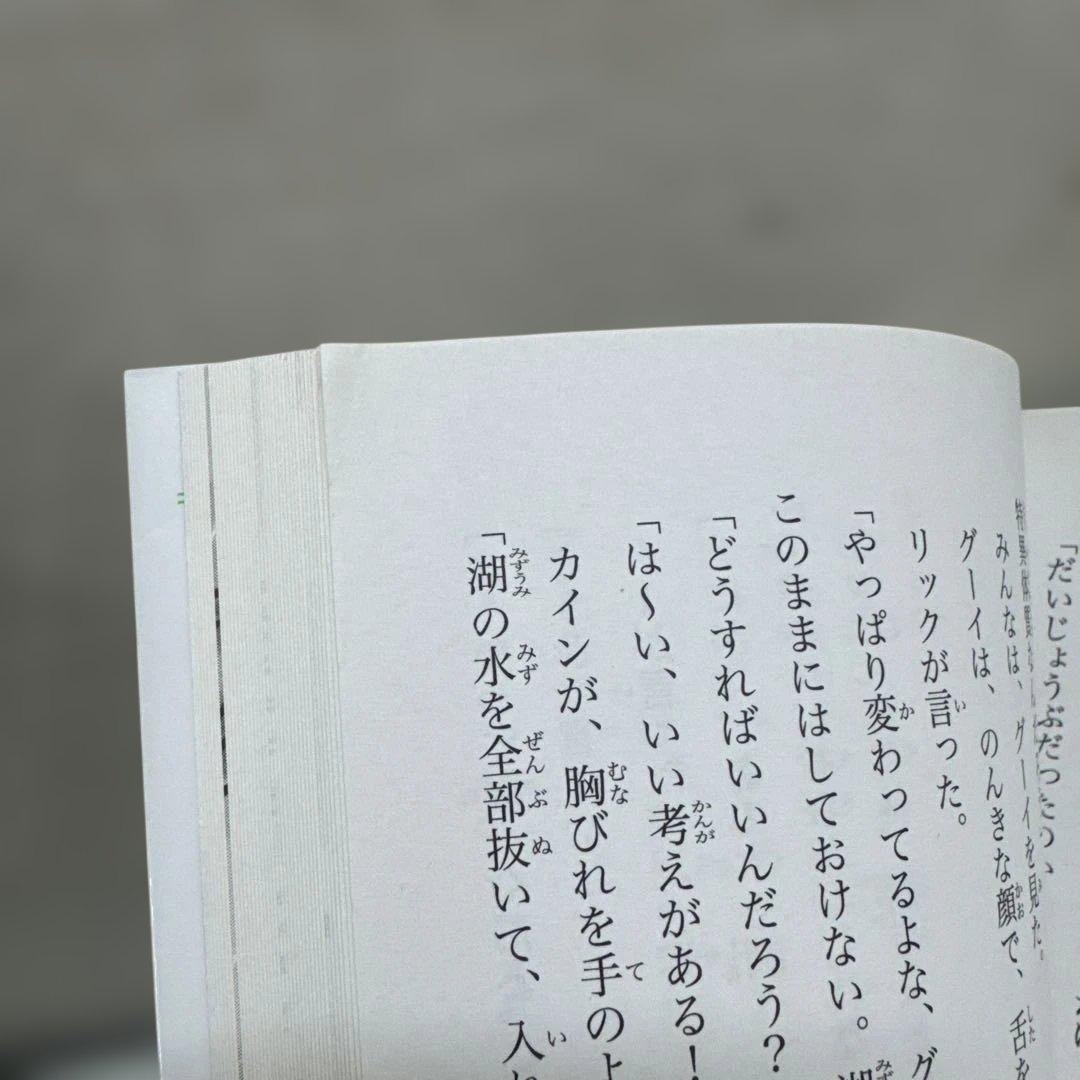 「だいじょうぶだったの、
特異体質
みんなは、グーイを見た。
グーイは、のんきな顔で、舌を
リックが言った。
「やっぱり変わってるよな、グ
このままにはしておけない。湖
「どうすればいいんだろう?
「は〜い、いい考えがある!
カインが、胸びれを手のよ
「湖の水を全部抜いて、入れ